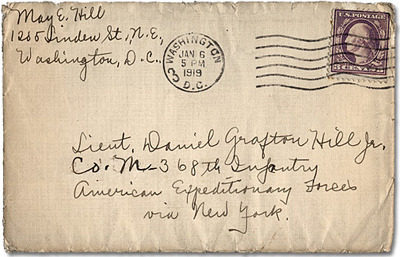 May E. Hill
1205 Linden St., N.E.,
Washington, D.C.
WASHINGTON
3
JAN 6
5 PM
1919
D.C.
U.S. POSTAGE
3 CENTS 3
Lieut. Daniel Grafton Hill Jr.
Co. M - 368th Infantry
American Expeditionary Forces
via New York.